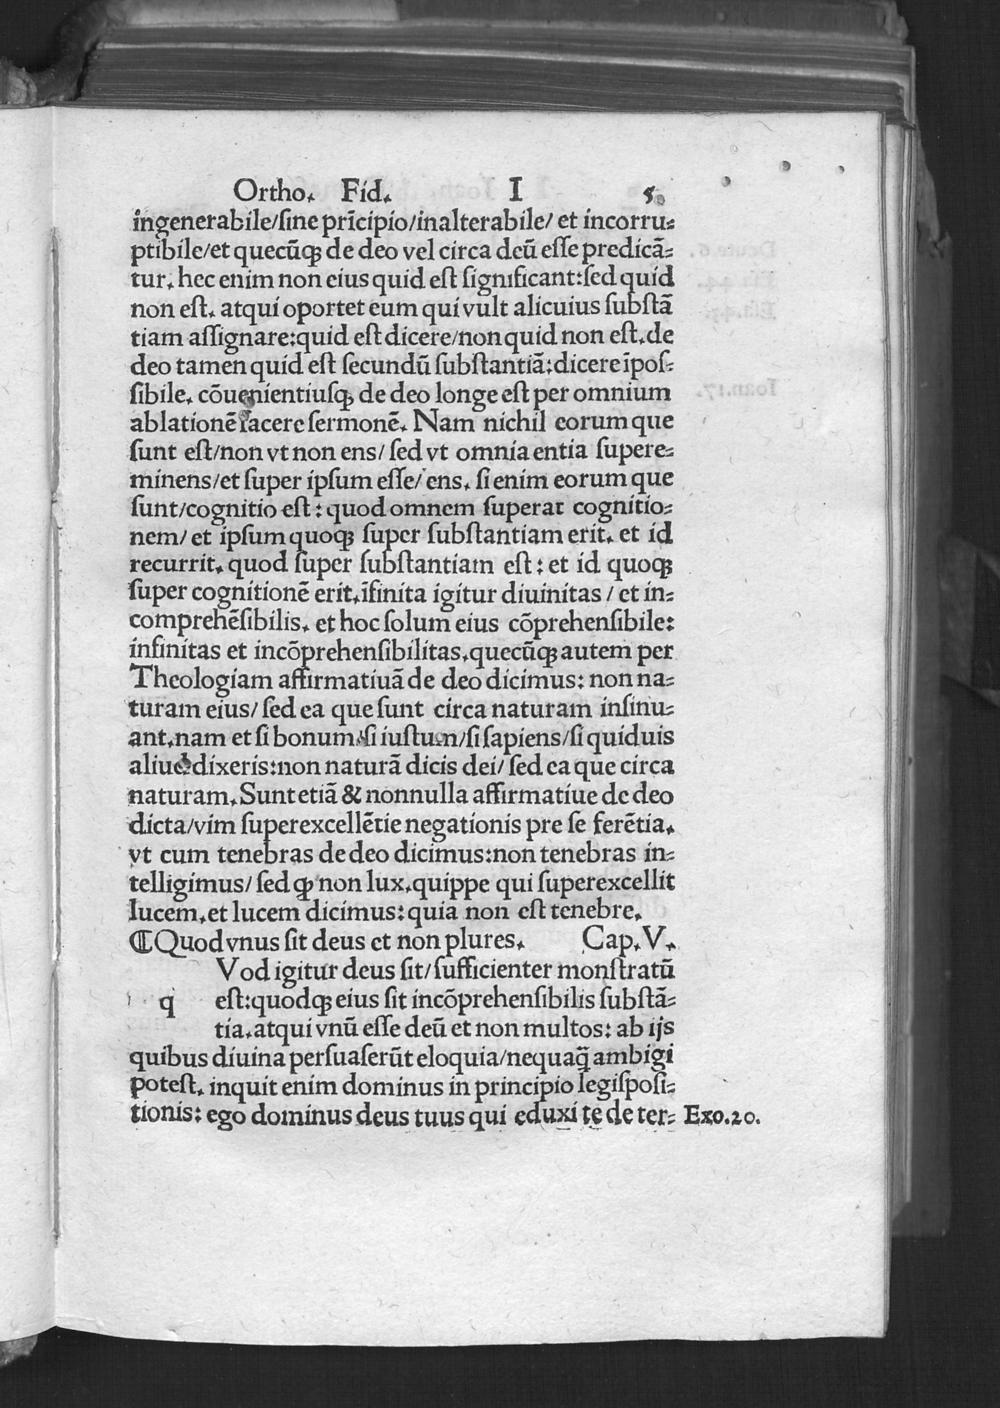 Ortho. Fid. I 5.
ingenerabile/ſine prīcipio/inalterabile/ et incorru⸗
ptibile/et quecūqꝫ de deo vel circa deū eſſe predicā⸗
tur. hec enim non eius quid eſt ſignificant:ſed quid
non eſt. atqui oportet eum qui vult alicuius ſubſtā
tiam aſſignare:quid eſt dicere/non quid non eſt. de
deo tamen quid eſt ſecundū ſubſtantiā:dicere īpoſ⸗
ſibile. cōuenientiuſqꝫ de deo longe eſt per omnium
ablationē facere ſermonē. Nam nichil eorum que
ſunt eſt/non vt non ens/ ſed vt omnia entia ſupere⸗
minens/et ſuper ipſum eſſe/ ens. ſi enim eorum que
ſunt/cognitio eſt: quod omnem ſuperat cognitio⸗
nem/ et ipſum quoqꝫ ſuper ſubſtantiam erit. et id
recurrit. quod ſuper ſubſtantiam eſt: et id quoqꝫ
ſuper cognitionē erit. īfinita igitur diuinitas / et in⸗
comprehēſibilis. et hoc ſolum eius cōprehenſibile:
infinitas et incōprehenſibilitas. quecūqꝫ autem per
Theologiam affirmatiuā de deo dicimus: non na⸗
turam eius/ ſed ea que ſunt circa naturam inſinu⸗
ant. nam et ſi bonum/ſi iuſtum/ſi ſapiens/ſi quiduis
aliud dixeris:non naturā dicis dei/ ſed ea que circa
naturam. Sunt etiā & nonnulla affirmatiue de deo
dicta/vim ſuperexcellētie negationis pre ſe ferētia.
vt cum tenebras de deo dicimus:non tenebras in⸗
telligimus/ ſed qꝫ non lux. quippe qui ſuperexcellit
lucem. et lucem dicimus: quia non eſt tenebre.
⸿Quod vnus ſit deus et non plures. Cap. V.
Vod igitur deus ſit/ ſufficienter monſtratū
q eſt:quodqꝫ eius ſit incōprehenſibilis ſubſtā⸗
tia. atqui vnū eſſe deū et non multos: ab ijs
quibus diuina perſuaſerūt eloquia/nequaq̄ ambigi
poteſt. inquit enim dominus in principio legiſpoſi⸗
tionis: ego dominus deus tuus qui eduxi te de ter⸗ Exo.20.